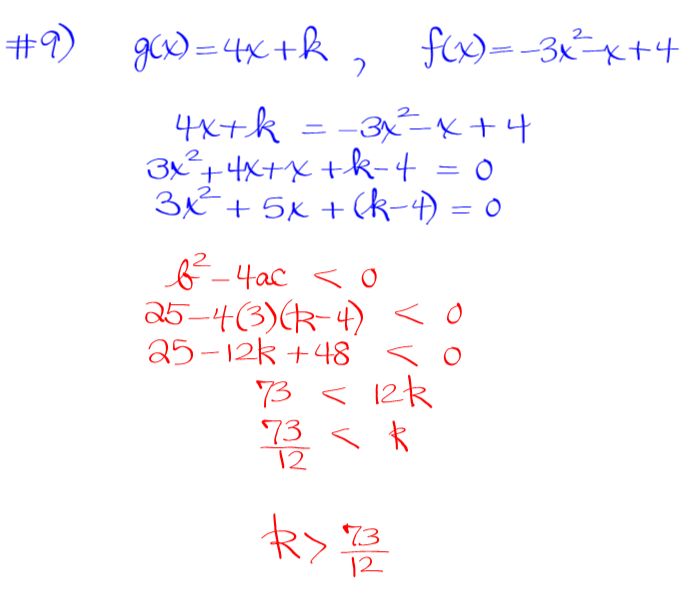 #9) g(x) = 4x + k , f(x) = -3x² - x + 4
4x + k = -3x² - x + 4
3x² + 4x + x + k - 4 = 0
3x² + 5x + (k - 4) = 0
b² - 4ac < 0
25 - 4(3)(k - 4) < 0
25 - 12k + 48 < 0
73 < 12k
73/12 < k
k > 73/12